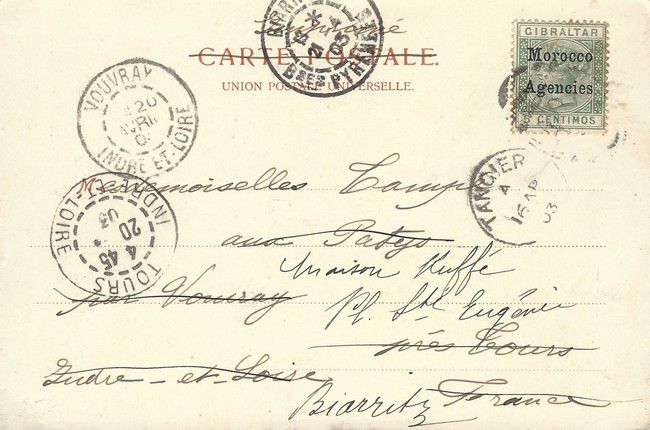 Imprimé
CARTE POSTALE.
UNION POSTALE UNIVERSELLE.
BIARRITZ * Bses PYRÉNÉES
21 4 03
GIBRALTAR
Morocco
Agencies
5 CENTIMOS
VOUVRAY
20
AVRIL
INDRE-ET-LOIRE
TANGIER
A
16 AP
03
Mesdemoiselles Camp
aux Patys
Maison Kuffé
par Vouvray
Pl. Ste Eugénie
près Tours
Indre-et-Loire
France
Biarritz
TOURS
INDRE-ET-LOIRE
4 45
20
03